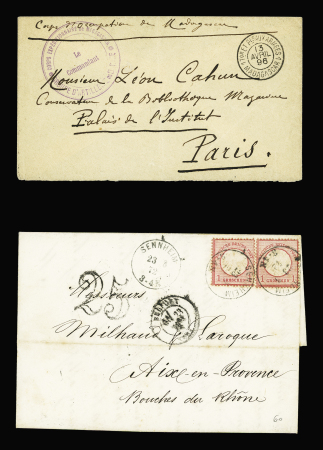 Corps d'occupation de Madagascar
Le
Commandant
13
AVRIL
96
Monsieur Léon Cahun
Conservateur de la Bibliothèque Mazarine
Palais de l'Institut
Paris.
SENNHEIM
23
25
Messieurs
1 GROSCHEN 1
1 GROSCHEN 1
Milhaud Laroque
Aix-en-Provence
Bouches du Rhône
60